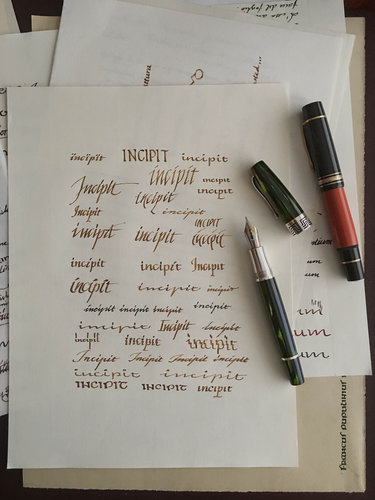 incipit INCIPIT incipit
Incipit incipit incipit
incipit incipit
Incipit incipit INCIPIT
incipit incipit incipit
incipit incipit Incipit
incipit incipit incipit
incipit incipit incipit incipit
incipit Incipit incipit
incipit incipit incipit
Incipit Incipit Incipit Incipit
incipit incipit
INCIPIT INCIPIT incipit
um
um
um
um